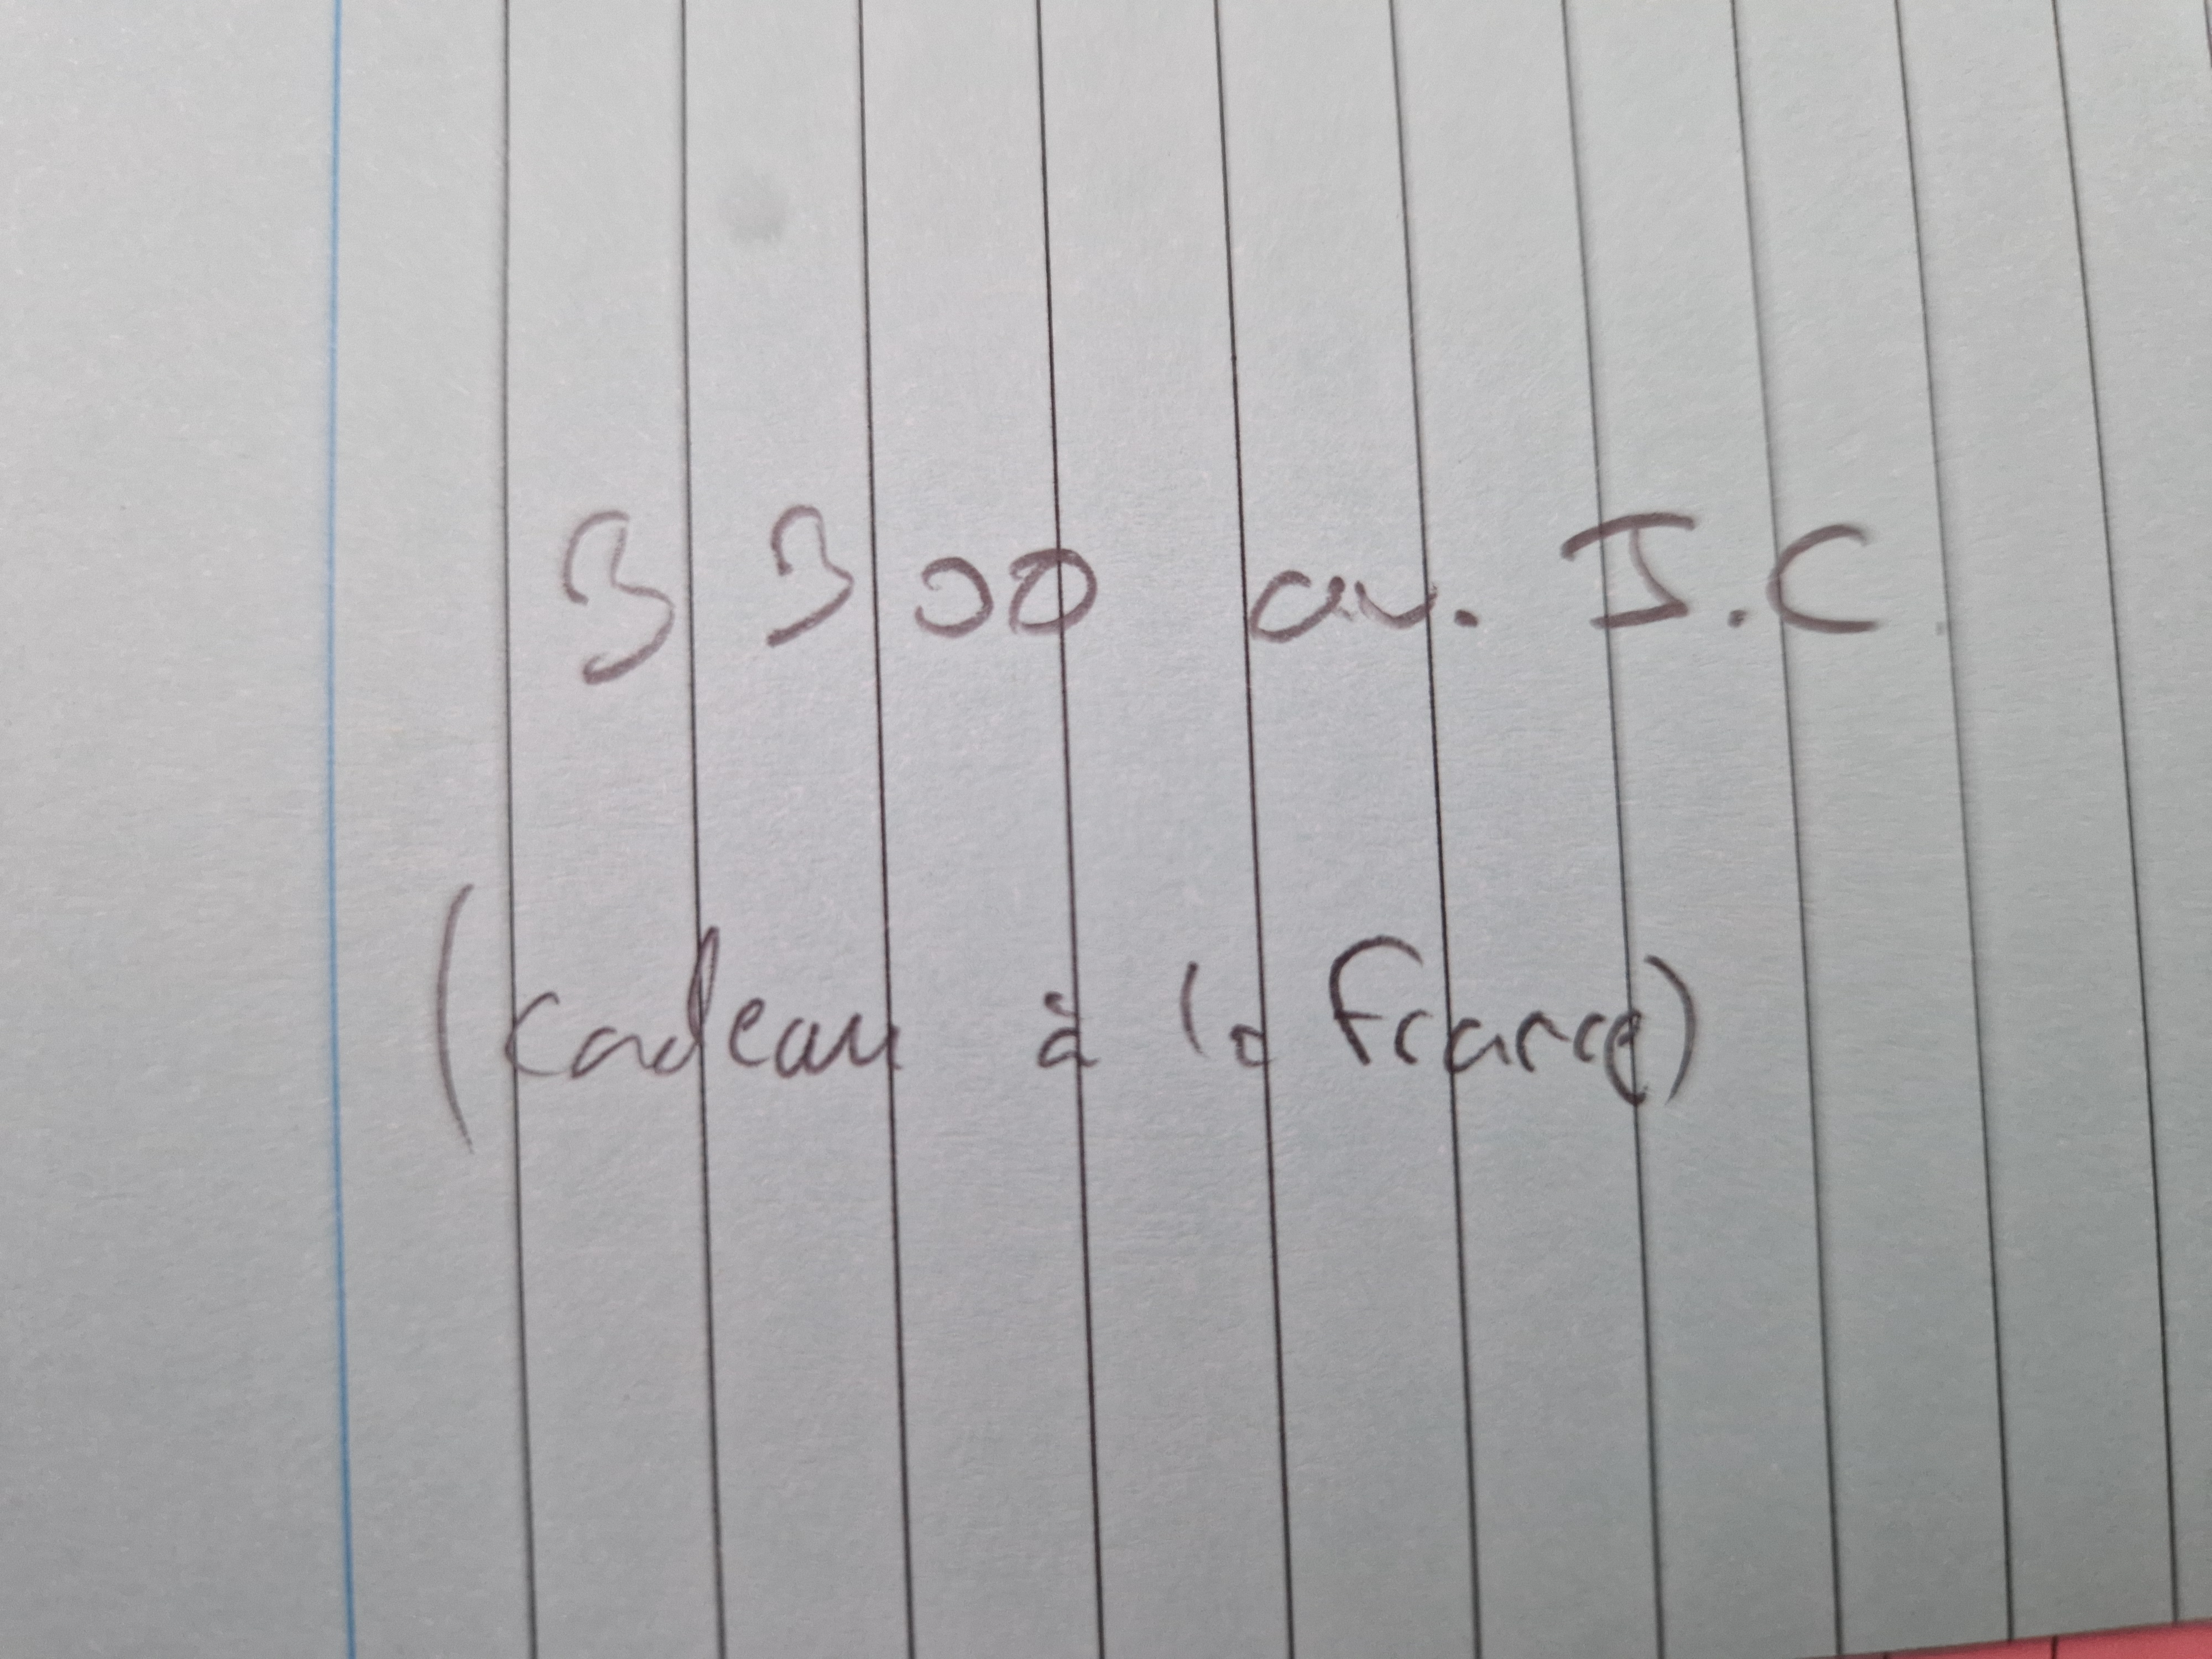 3300 av. J.C
(cadeau à la France)